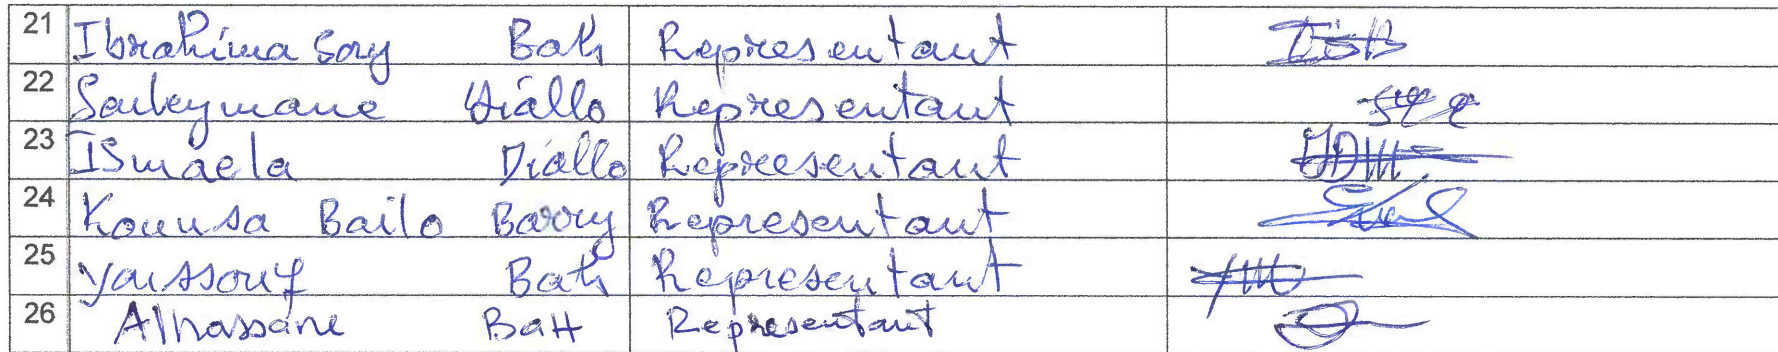 21 Ibrahima Sory Bah Representant
22 Souleymane Diallo Representant
23 ISmaela Diallo Representant
24 Bailo Barry Representant
25 Youssouf Bah Representant
26 Alhassane BaH Representant